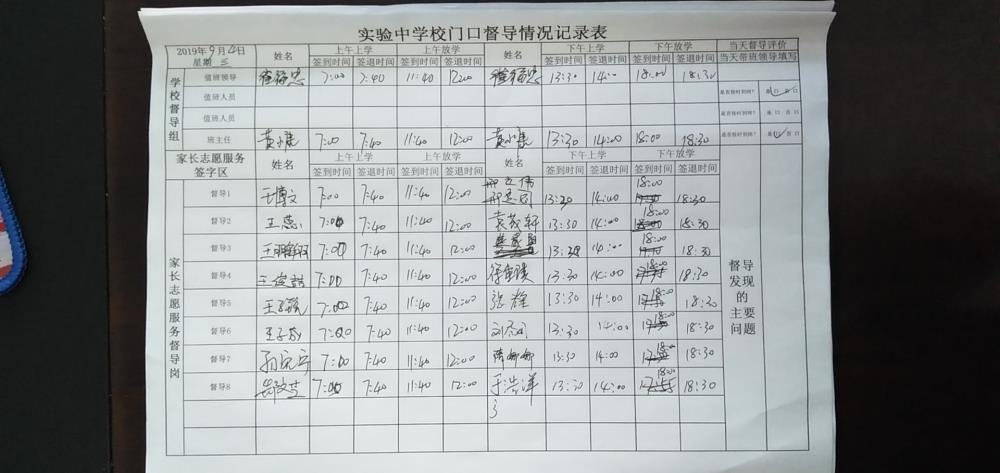 实验中学校门口督导情况记录表
2019年9月4日 星期三 姓名 上午上学 上午放学 姓名 下午上学 下午放学 当天督导评价
签到时间 签退时间 签到时间 签退时间 签到时间 签退时间 签到时间 签退时间 当天带班领导填写
学校督导组
值班领导 7:00 7:40 11:40 12:00 13:30 14:00 18:00 18:30 是否按时到班? 是 否
值班人员 是否按时到班? 是 否
值班人员 是否按时到班? 是 否
班主任 7:00 7:40 11:40 12:00 13:30 14:00 18:00 18:30 是否按时到班? 是 否
家长志愿服务签字区 姓名 上午上学 上午放学 姓名 下午上学 下午放学
签到时间 签退时间 签到时间 签退时间 签到时间 签退时间 签到时间 签退时间
家长志愿服务督导岗
督导1 王博文 7:00 7:40 11:40 12:00 13:30 14:00 18:00 18:30
督导2 王蕊 7:00 7:40 11:40 12:00 袁茂轩 13:30 14:00 18:00 18:30
督导3 7:00 7:40 11:40 12:00 13:30 14:00 18:00 18:30
督导4 7:00 7:40 11:40 12:00 13:30 14:00 18:00 18:30
督导5 7:00 7:40 11:40 12:00 张雄 13:30 14:00 18:00 18:30
督导6 7:00 7:40 11:40 12:00 13:30 14:00 18:00 18:30
督导7 7:00 7:40 11:40 12:00 13:30 14:00 18:00 18:30
督导8 7:00 7:40 11:40 12:00 于浩洋 13:30 14:00 18:00 18:30
督导发现的主要问题